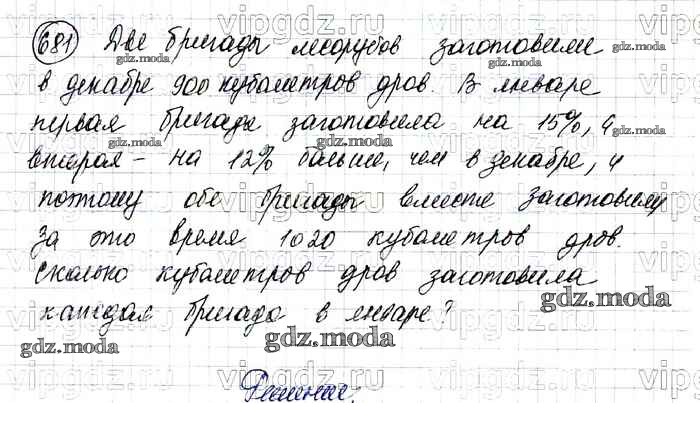 681 Две бригады лесорубов заготовили
в декабре 900 кубометров дров. В январе
первая бригада заготовила на 15%, а
вторая – на 12% больше, чем в декабре, и
поэтому обе бригады вместе заготовили
за это время 1020 кубометров дров.
Сколько кубометров дров заготовила
каждая бригада в январе?
Решение.
gdz.moda
vipgdz.ru